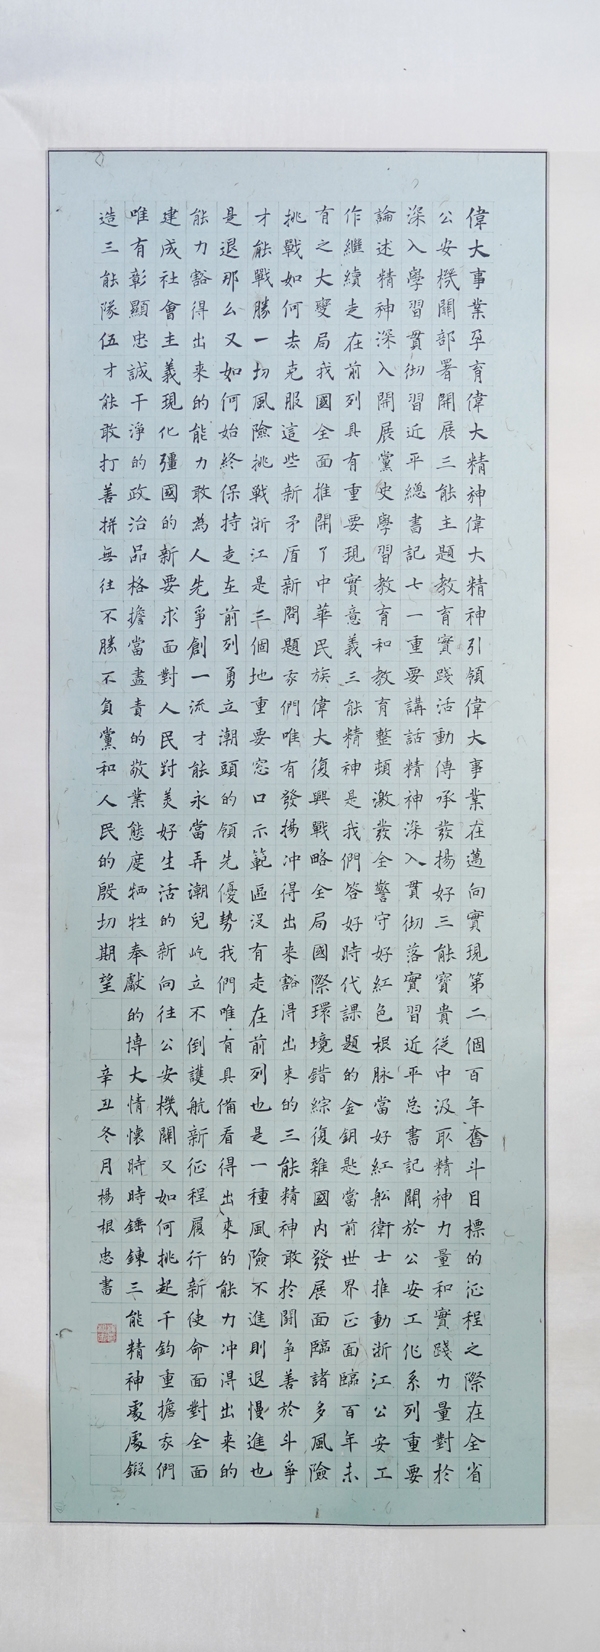 偉大事業孕育偉大精神偉大精神引領偉大事業在邁向實現第二個百年奮斗目標的征程之際在全省
公安機關部署開展三能主題教育實踐活動傳承發揚好三能寶貴從中汲取精神力量和實踐力量對於
深入學習貫彻習近平總書記七一重要講話精神深入貫彻落實習近平总書記關於公安工作系列重要
論述精神深入開展黨史學習教育和教育整頓激發全警守好紅色根脉當好紅船衛士推動浙江公安工
作繼續走在前列具有重要現實意義三能精神是我們答好時代課題的金鈅匙當前世界正面臨百年未
有之大變局我國全面推開了中華民族偉大復興戰略全局國際環境錯綜復雜國内發展面臨諸多風險
挑戰如何去克服這些新矛盾新問題我們唯有發揚冲得出來豁得出来的三能精神敢於鬭争善於斗爭
才能戰勝一切風險挑戰浙江是三個地重要窓口示範區没有走在前列也是一種風險不進則退慢進也
是退那么又如何始終保持走在前列勇立潮頭的領先優勢我們唯有具備看得出來的能力冲得出来的
能力豁得出来的能力敢為人先爭創一流才能永當弄潮兒屹立不倒護航新征程履行新使命面對全面
建成社會主義現化彊國的新要求面對人民對美好生活的新向往公安機關又如何挑起千鈞重擔我們
唯有彰顯忠誠干淨的政治品格擔當盡責的敬業態度犧牲奉獻的博大情懷時時錘鍊三能精神處處鍛
造三能隊伍才能敢打善拼無往不勝不負黨和人民的殷切期望
辛丑冬月楊根忠書